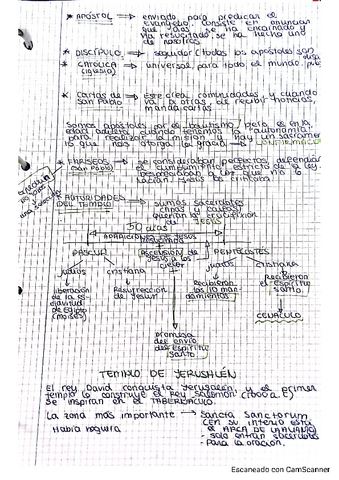 * APÓSTOL → enviado, para predicar el
evangelio. consiste en anunciar
que "dios" se ha encarnado y
ha resucitado, se ha hecho uno
de nosotros
* DISCÍPULO → seguidor (todos los apóstoles son
* CATÓLICA → universal, para todo el mundo.
(iglesia)
* Cartas de → Este crea comunidades, y cuando
San Pablo a otras, de recibir noticias,
manda cartas
Somos apóstoles por el bautismo, pero es en la
edad adulta cuando tenemos la autonomía
para realizar la misión y hay un sacramento
lo que nos otorga la gracia → CONFIRMACIÓ
* FARISEOS → se consideraban perfectos, defendían
(San Pablo) el cumplimiento estricto de la ley
despreciaban a los que no lo
hacían. Jesús los critica
* AUTORIDADES → sumos sacerdotes
DEL TEMPLO (Anás y Caifás)
querían la crucifixión
de JESÚS
50 días
APARICIONES DE JESÚS
RESUCITADO
+
PASCUA ASCENSIÓN DE PENTECOSTÉS
Jesús a los
cielos
judíos cristiana judíos cristiana
liberación Resurrección Recibieron Recibieron
de la es- de Jesús los 10 man- el Espíritu
clavitud damientos Santo
de Egipto
(Moisés) CENÁCULO
promesa
del envío
del Espíritu
Santo
TEMPLO DE JERUSALÉN
El rey David conquista Jerusalén, y el primer
templo lo construye el Rey Salomón (1000 a.C)
Se inspiran en el TABERNÁCULO.
La zona más importante → Sancta Sanctorum
en su interio está
Había hoguera el ARCA DE LA ALIANZA
- solo entran sacerdotes
- para la oración.
Escaneado con CamScanner